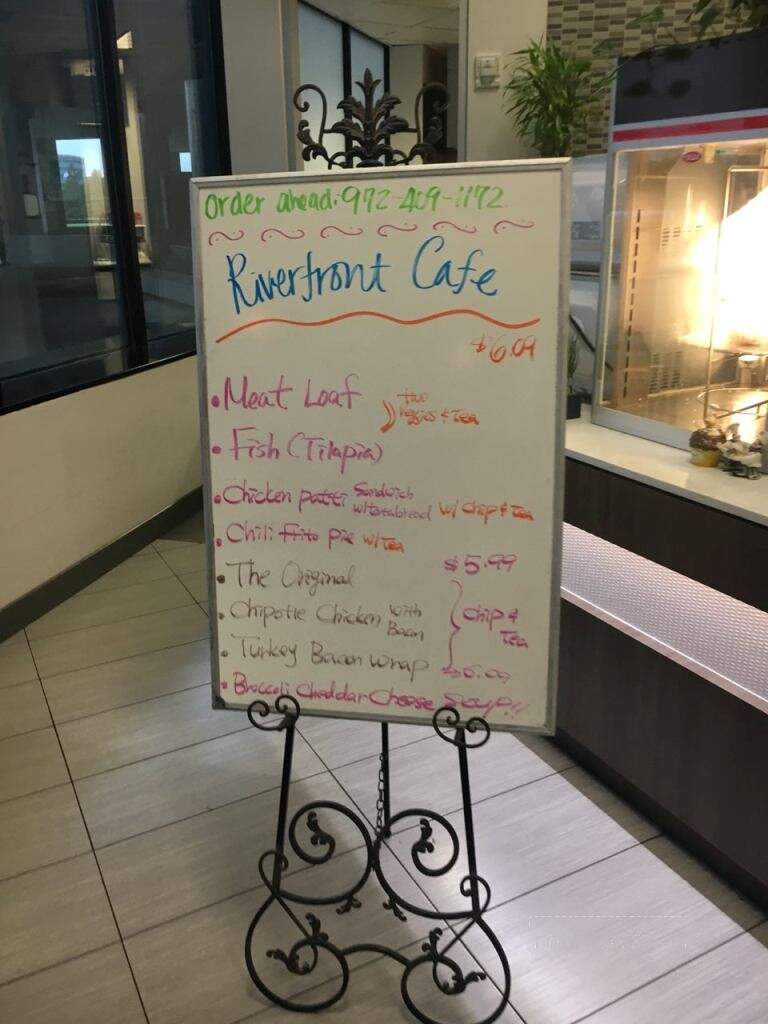 Order ahead: 972-409-1172
Riverfront Cafe
$6.09
• Meat Loaf
two veggies & Tea
• Fish (Tilapia)
• Chicken patti Sandwich w/ chip & Tea
• Chili frito pie w/Tea
$5.99
• The Original
• Chipotle Chicken with Bacon
chip & Tea
• Turkey Bacon wrap
$6.09
• Broccoli Cheddar Cheese Soup!!